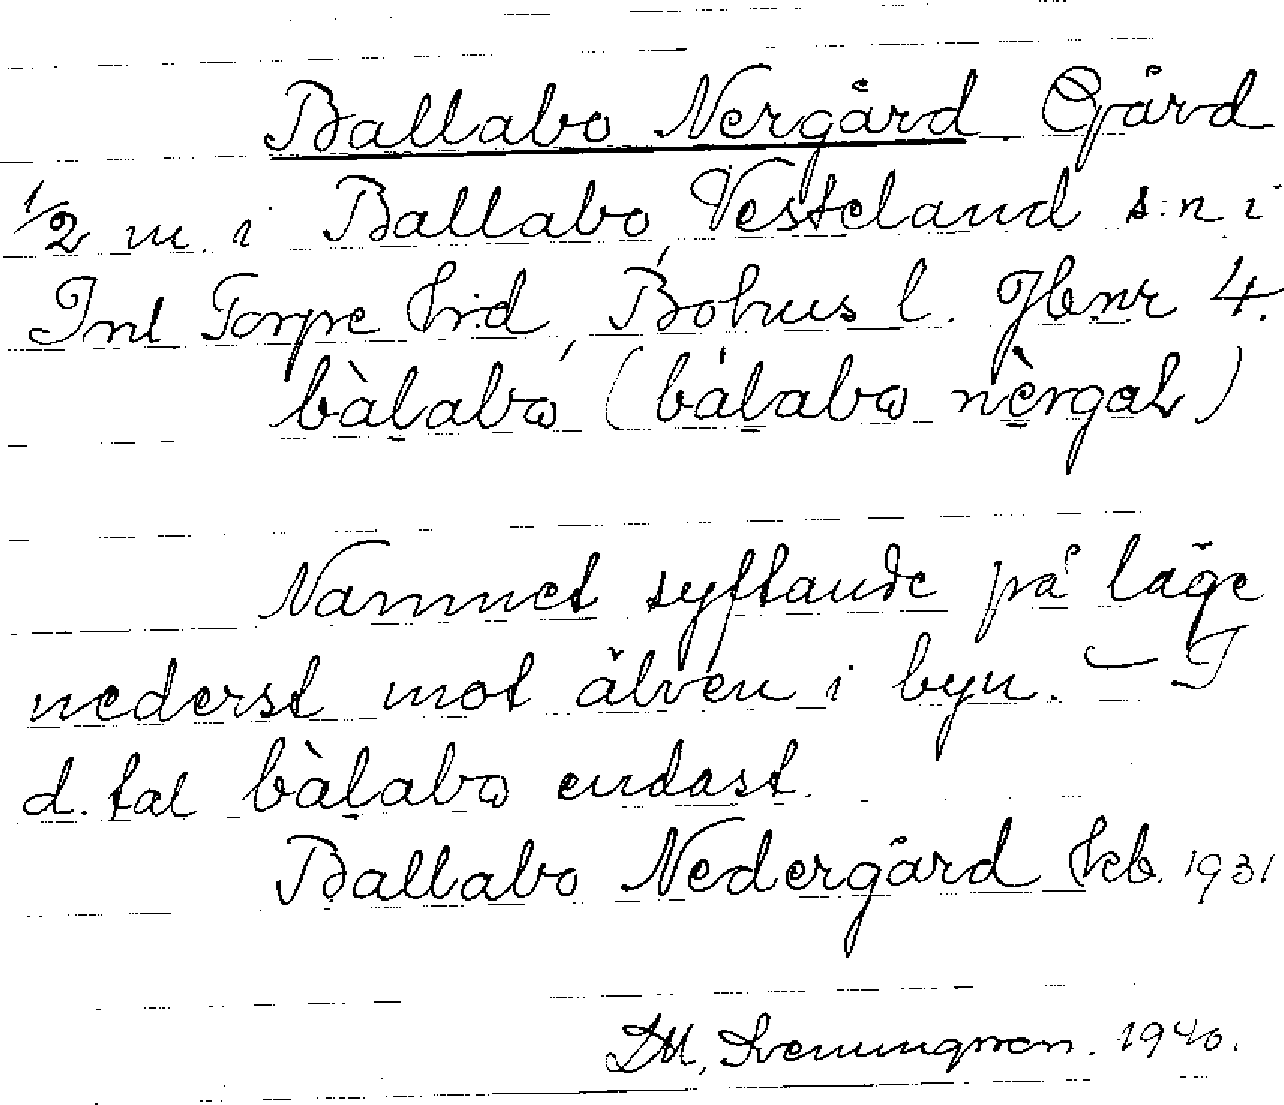 Ballabo Nergård Gård
1/2 m. i Ballabo, Vesteland s:n i
Inl Torpe Hrd, Bohus l. Jb.nr 4.
bàḷabω (báḷabω nèrgaL)
Namnet syftande på läge
nederst mot älven i byn. — I
d. tal bàḷabω endast.
Ballabo Nedergård Jeb. 1931
DM, Svenungsson. 1940.